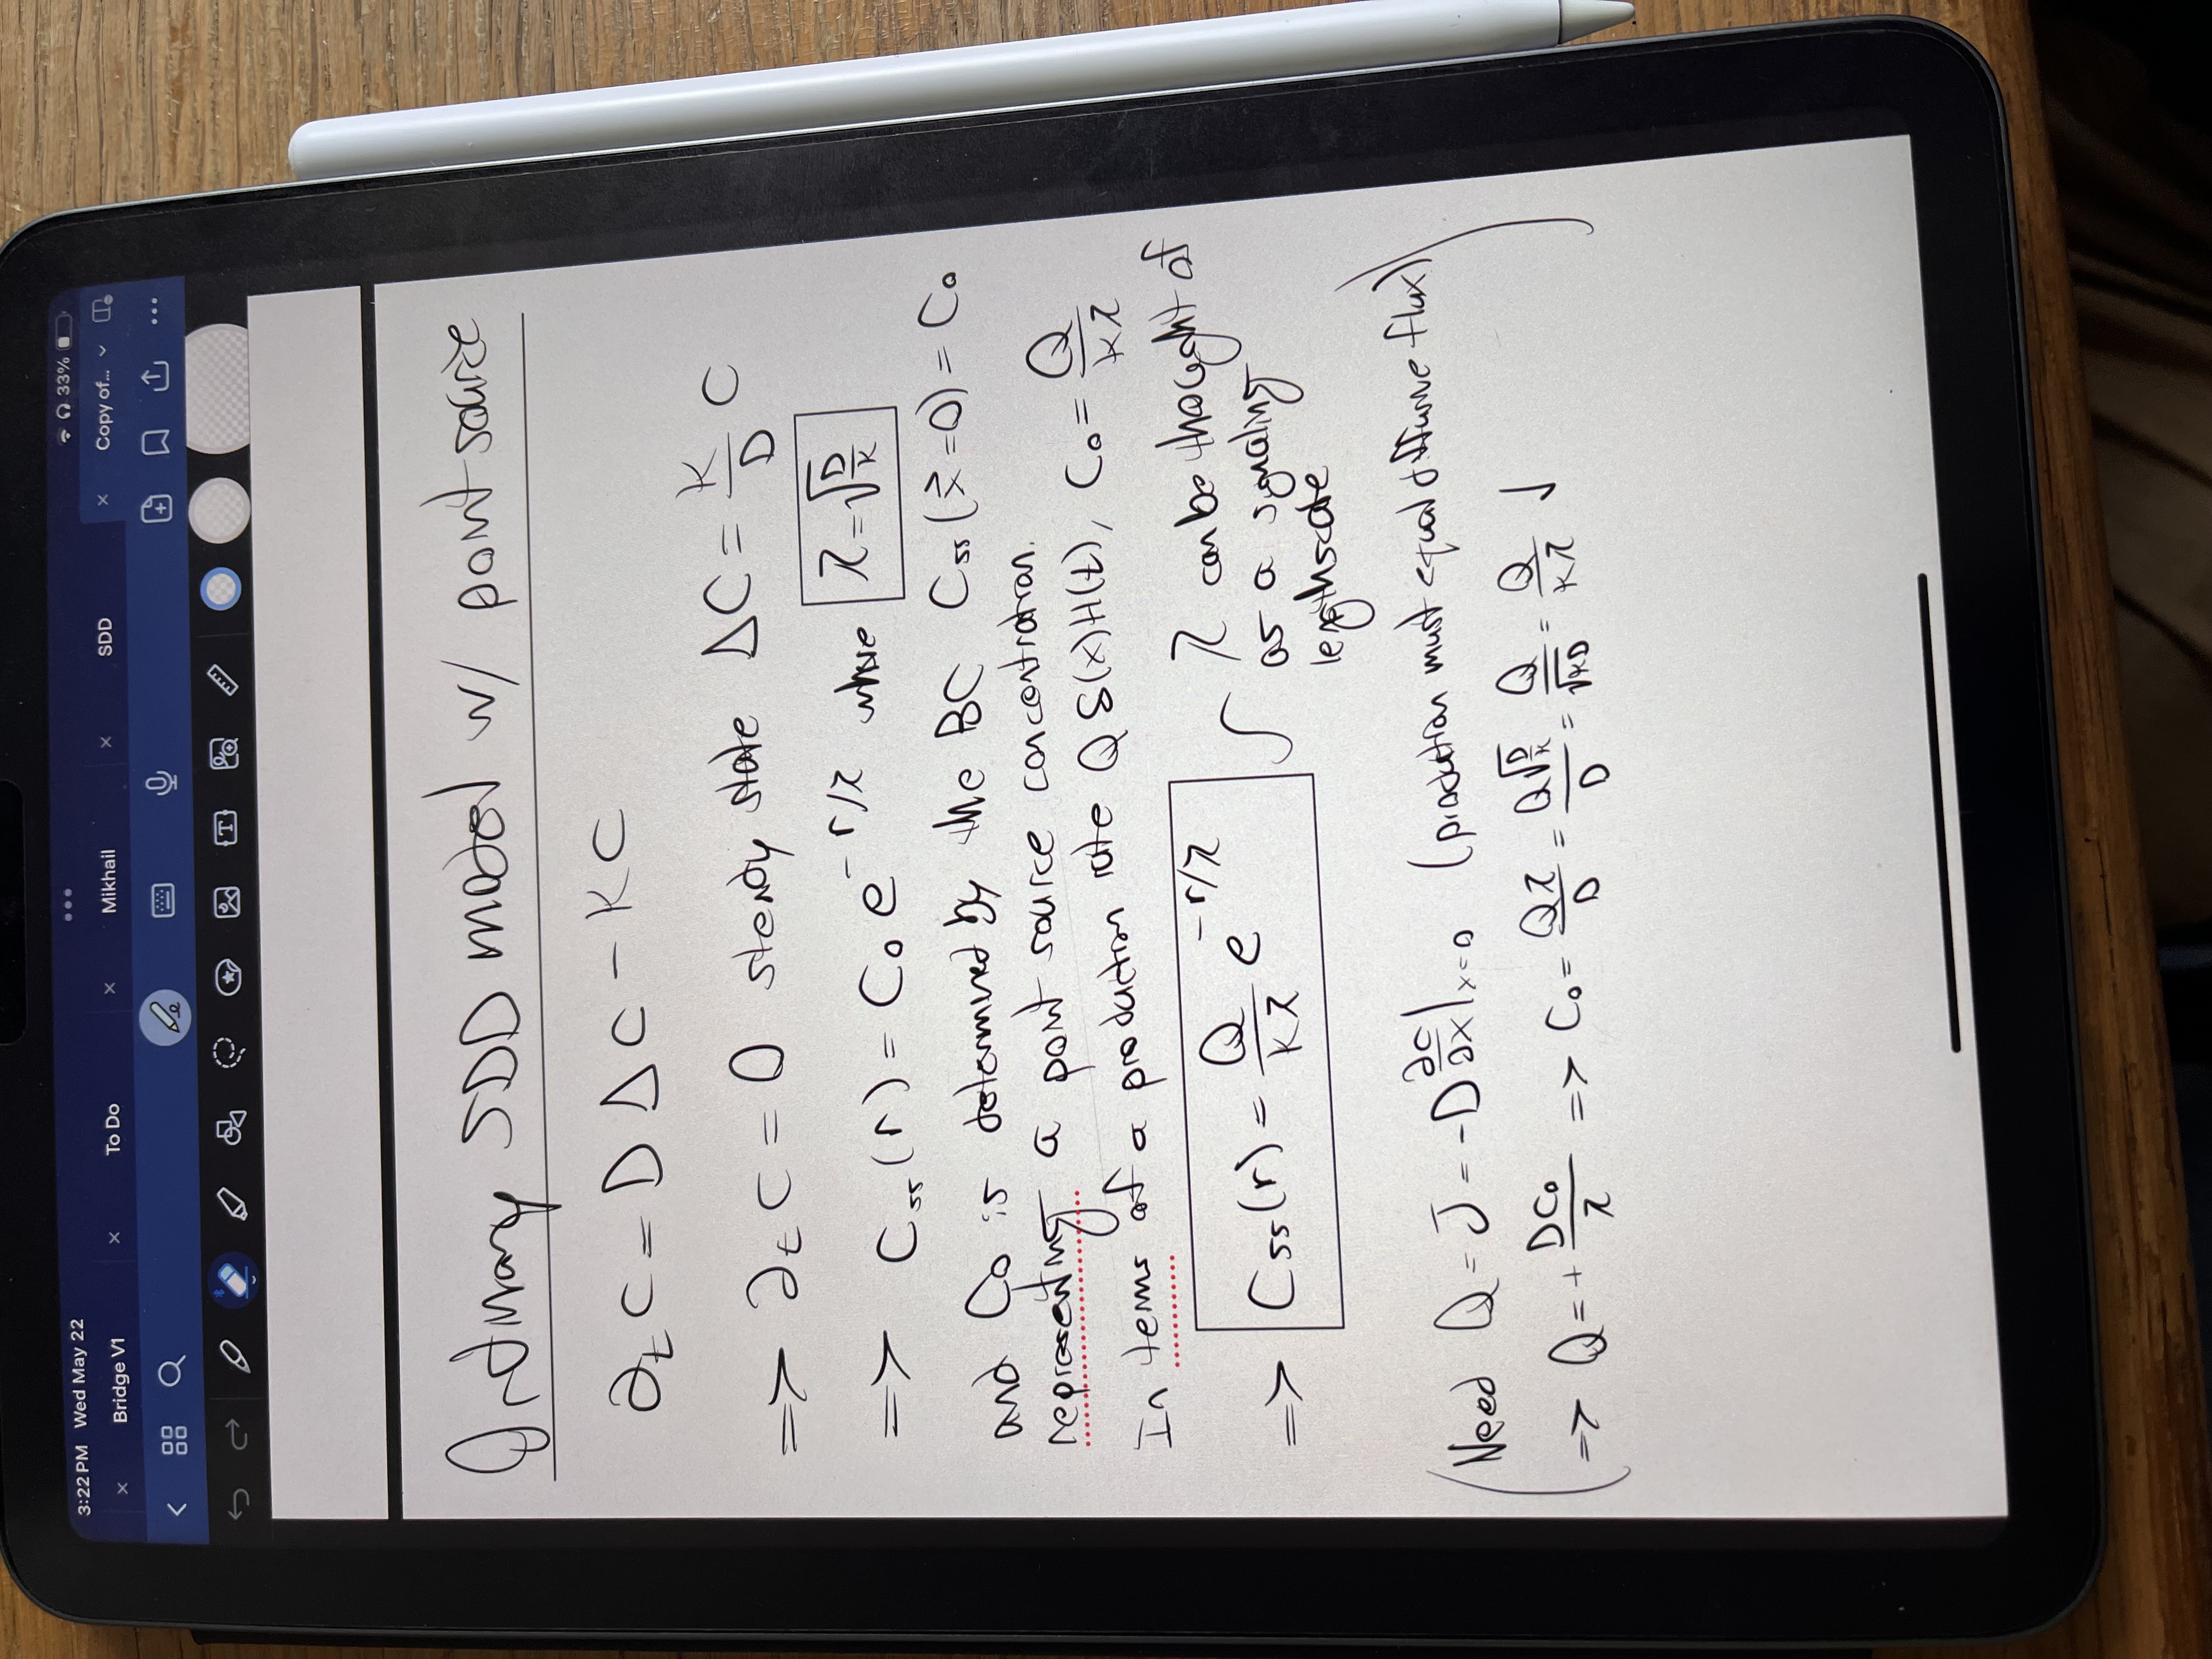 3:22 PM Wed May 22
33%
Bridge V1
To Do
Mikhail
SDD
Copy of...
Ordinary SDD model w/ point source
∂ₜC = D ΔC − KC
=> ∂ₜC = 0 steady state ΔC = K/D C
=> Css(r) = C₀ e^(−r/λ) where λ = √(D/K)
and C₀ is determined by the BC Css(x⃗=0) = C₀
representing a point source concentration.
In terms of a production rate Q δ(x)H(t), C₀ = Q/(Kλ)
=> Css(r) = Q/(Kλ) e^(−r/λ)
λ can be thought of
as a signaling
lengthscale
(Need Q = J = −D ∂C/∂x|ₓ₌₀ (production must equal diffusive flux)
=> Q = + DC₀/λ => C₀ = Qλ/D = Q√(D/K)/D = Q/√(KD) = Q/(Kλ) ✓)